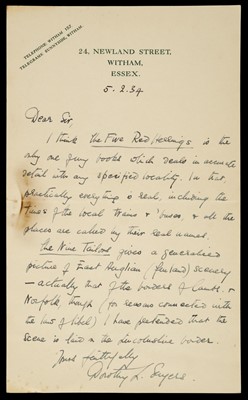 TELEPHONE, WITHAM 157.
TELEGRAMS SUNNYSIDE, WITHAM.
24, NEWLAND STREET,
WITHAM,
ESSEX.
5.2.34
Dear Sir
I think the Five Red Herrings is the
only one of my books which deals in accurate
detail with any specified locality. In that
practically everything is real, including the
times of the local trains & 'buses, & all the
places are called by their real names.
The Nine Tailors gives a generalised
picture of East Anglian (fenland) scenery
— actually that of the borders of Cambs. &
Norfolk though (for reasons connected with
the law of libel) I have pretended that the
scene is laid on the Lincolnshire border.
Yours faithfully
Dorothy L. Sayers